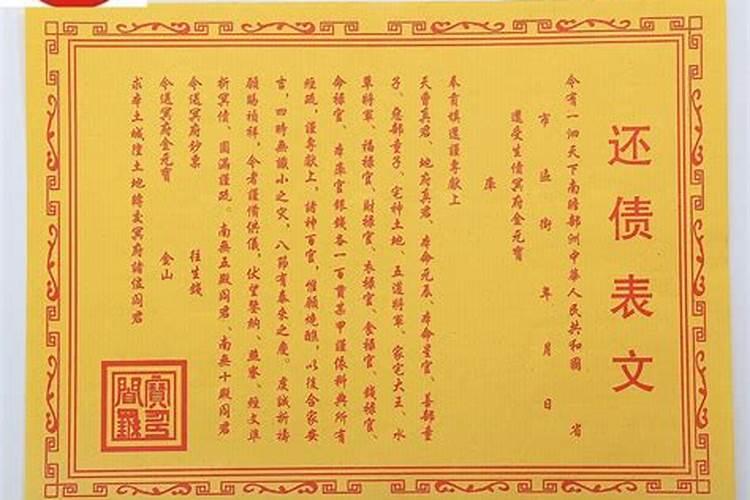 还债表文
今有一泗天下南瞻部洲中華人民共和國 省
市 區 街 年 月 日
還受生債冥府金元寶
庫
奉肯填還謹專獻上
天曹真君、地府真君、本命元辰、本命星官、善部童
子、惡部童子、宅神土地、五道將軍、家宅大王、水
草將軍、福祿官、財祿官、衣祿官、食祿官、錢祿官、
命祿官、本庫官銀錢各一百貫某甲謹依科典所有
經疏，謹專獻上，諸神百官，惟願燒醮，以後合家安
吉，四時無識小之灾，八節有泰來之慶。虔誠祈禱
願賜禎祥，令者謹備供儀，伏望鑒納、燕寮、經文準
折冥債、圓滿謹疏。南無五殿阎君、南無十殿阎君
今送冥府鈔票 往生錢
今送冥府金元寶 金山
求本土城隍土地轉交冥府諸位阎君